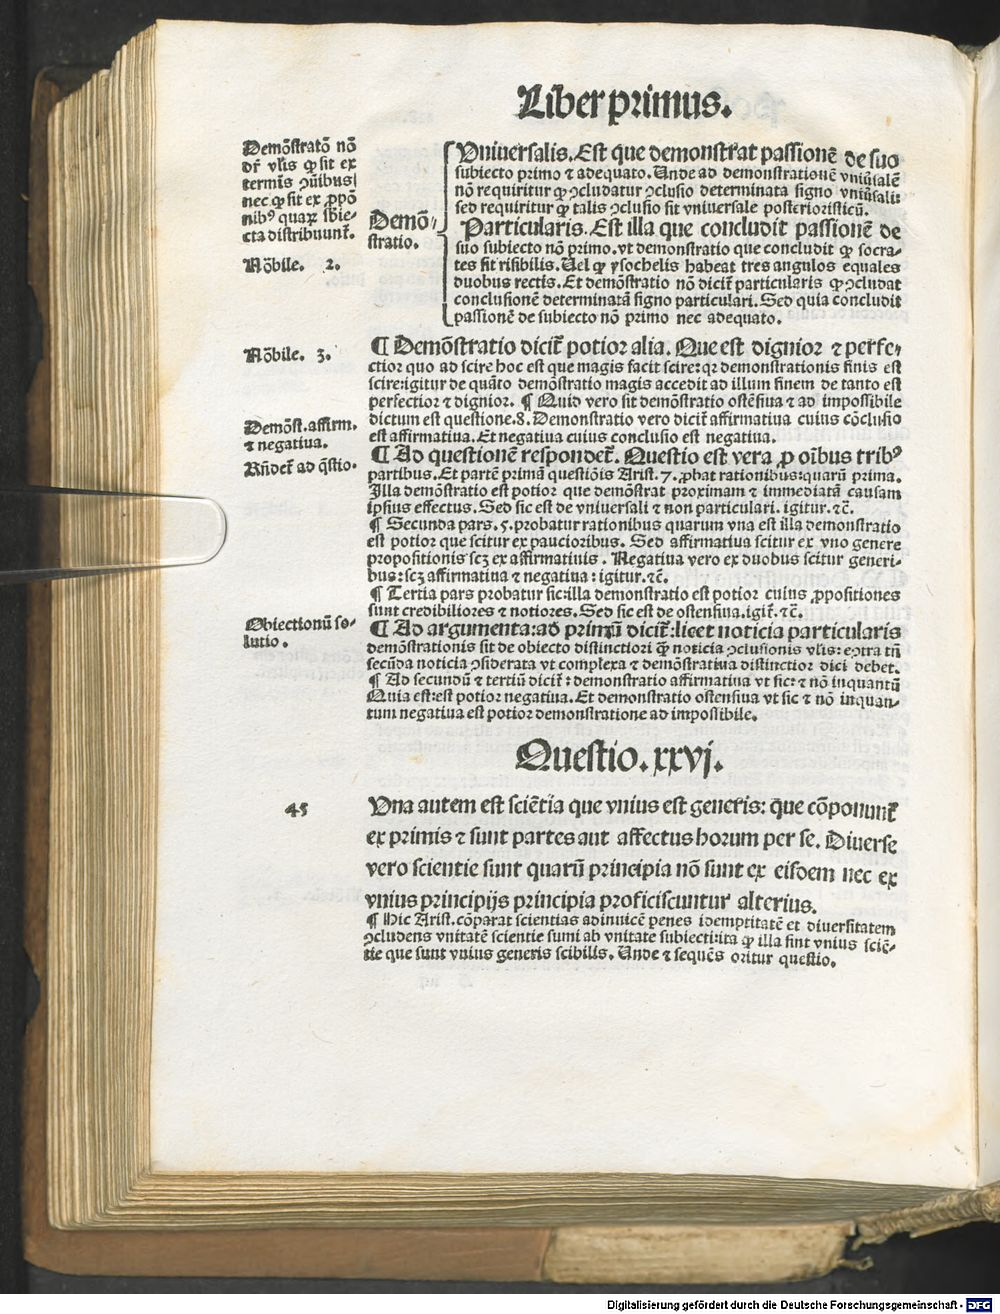 Liber primus.
Demõstratõ nõ
dr̃ vlis ꝙ sit ex
termĩs cõibus
nec ꝙ sit ex ꝓpõ
nibꝰ quaꝝ sbie-
cta distribuunt̃.
Nõbile. 2.
Demõ-
stratio.
Vniuersalis. Est que demonstrat passionẽ de suo
subiecto primo ⁊ adequato. Unde ad demonstrationẽ vniũsalẽ
nõ requiritur ꝙ ↄcludatur ↄclusio determinata signo vniũsali:
sed requiritur ꝙ talis ↄclusio sit vniuersale posterioristicũ.
Particularis. Est illa que concludit passionẽ de
suo subiecto nõ primo. vt demonstratio que concludit ꝙ socra-
tes sit risibilis. Uel ꝙ ysochelis habeat tres angulos equales
duobus rectis. Et demõstratio nõ dicit̃ particularis ꝙ ↄcludat
conclusionẽ determinatã signo particulari. Sed quia concludit
passionẽ de subiecto nõ primo nec adequato.
Nõbile. 3.
¶ Demõstratio dicit̃ potior alia. Que est dignior ⁊ perfe-
ctior quo ad scire hoc est que magis facit scire: qꝛ demonstrationis finis est
scire: igitur de quãto demõstratio magis accedit ad illum finem de tanto est
perfectior ⁊ dignior. ¶ Quid vero sit demõstratio ostẽsiua ⁊ ad impossibile
Demõst. affirm.
⁊ negatiua.
dictum est questione. 8. Demonstratio vero dicit̃ affirmatiua cuius cõclusio
est affirmatiua. Et negatiua cuius conclusio est negatiua.
Rñdet̃ ad q̃stio.
¶ Ad questionẽ respondet̃. Questio est vera ꝓ oĩbus tribꝰ
partibus. Et partẽ primã questiõis Arist. 7. ꝓbat rationibus: quarũ prima.
Illa demõstratio est potior que demõstrat proximam ⁊ immediatã causam
ipsius effectus. Sed sic est de vniuersali ⁊ non particulari. igitur. ⁊c̃.
¶ Secunda pars. 5. probatur rationibus quarum vna est illa demonstratio
est potior que scitur ex paucioribus. Sed affirmatiua scitur ex vno genere
propositionis scꝫ ex affirmatiuis. Negatiua vero ex duobus scitur generi-
bus: scꝫ affirmatiua ⁊ negatiua: igitur. ⁊c̃.
¶ Tertia pars probatur sic: illa demonstratio est potior cuius ꝓpositiones
sunt credibiliores ⁊ notiores. Sed sic est de ostensiua. igit̃. ⁊c̃.
Obiectionũ so-
lutio.
¶ Ad argumenta: ad primũ dicit̃: licet noticia particularis
demõstrationis sit de obiecto distinctiori ꝙ̃ noticia ↄclusionis vlis: extra tñ
secũda noticia ↄsiderata vt complexa ⁊ demõstratiua distinctior dici debet.
¶ Ad secundũ ⁊ tertiũ dicit̃: demonstratio affirmatiua vt sic: ⁊ nõ inquantũ
Quia est: est potior negatiua. Et demonstratio ostensiua vt sic ⁊ nõ inquan-
tum negatiua est potior demonstratione ad impossibile.
Questio. xxvj.
45
Vna autem est sciẽtia que vnius est generis: que cõponunt̃
ex primis ⁊ sunt partes aut affectus horum per se. Diuerse
vero scientie sunt quarũ principia nõ sunt ex eisdem nec ex
vnius principijs principia proficiscuntur alterius.
¶ Hic Arist. cõparat scientias adinuicẽ penes idemptitatẽ et diuersitatem
ↄcludens vnitatẽ scientie sumi ab vnitate subiecti: ita ꝙ illa sint vnius sciẽ-
tie que sunt vnius generis scibilis. Unde ⁊ sequẽs oritur questio.
Digitalisierung gefördert durch die Deutsche Forschungsgemeinschaft - DFG